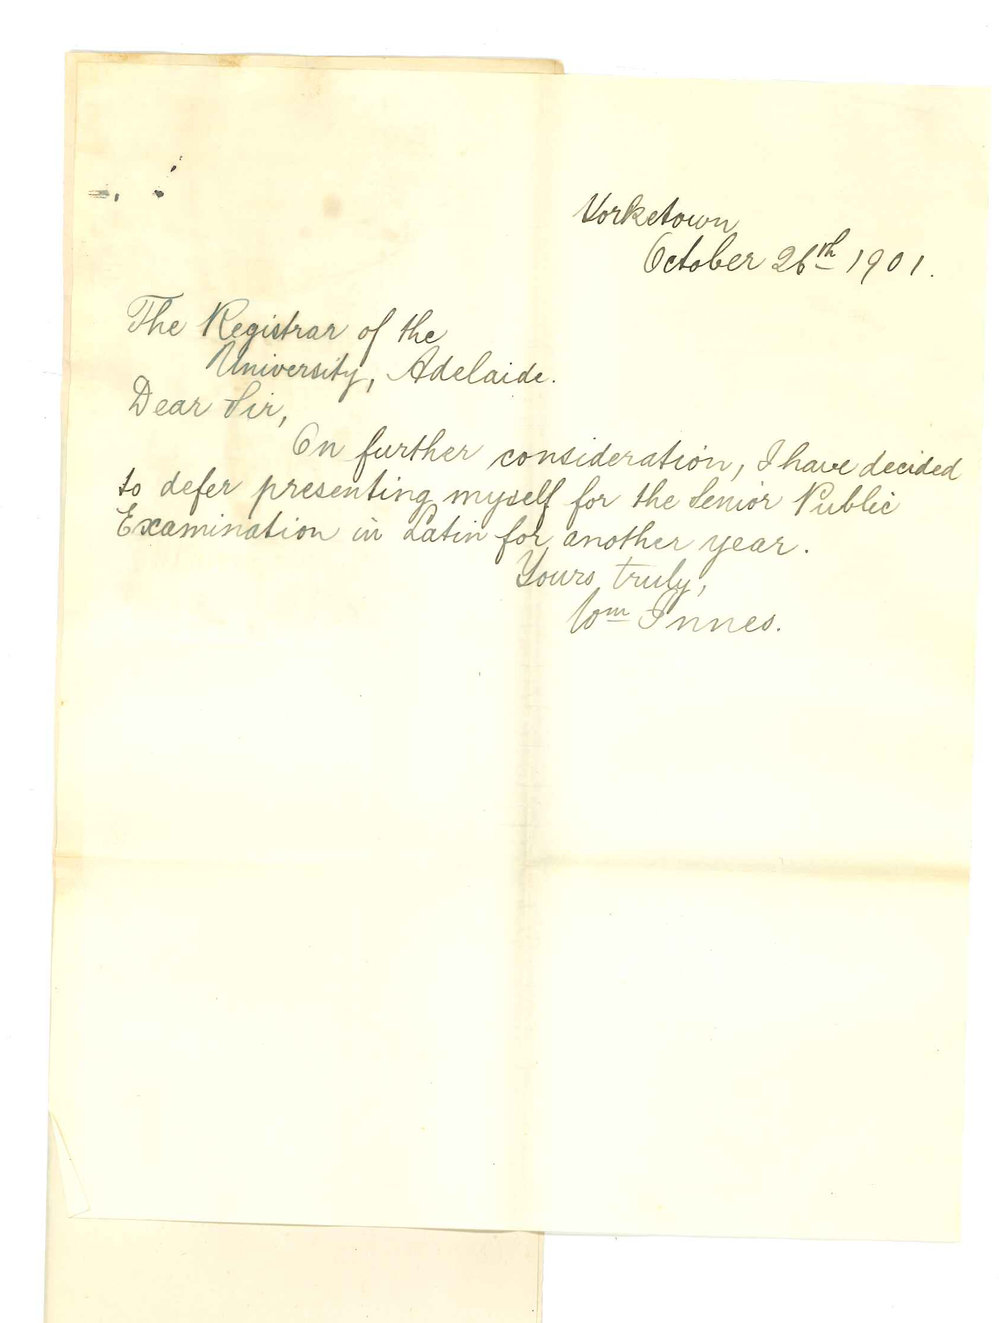 Yorketown
October 26th 1901.
The Registrar of the
University, Adelaide.
Dear Sir,
On further consideration, I have decided
to defer presenting myself for the Senior Public
Examination in Latin for another year.
Yours truly,
Wm Innes.